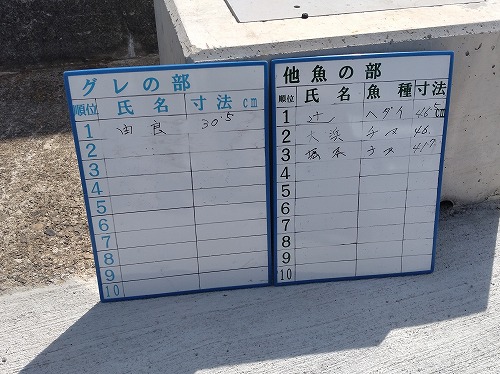 グレの部
順位 氏名 寸法 cm
1 由良 30.5
2
3
4
5
6
7
8
9
10
他魚の部
順位 氏名 魚種 寸法
1 辻 ヘダイ 46.5 cm
2 大浜 チヌ 46.
3 坂本 チヌ 41.7
4
5
6
7
8
9
10